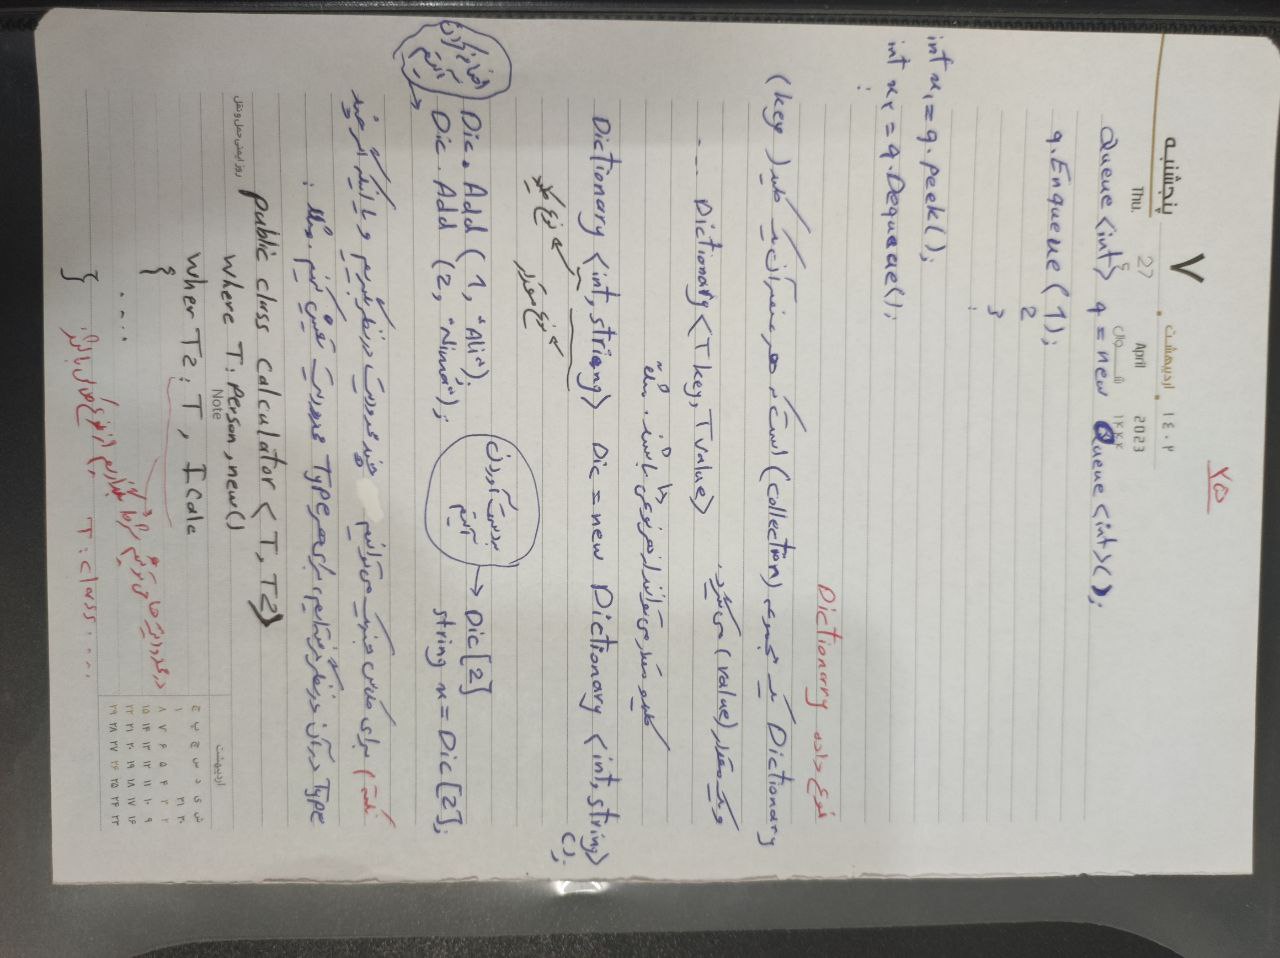 ۲۵
پنجشنبه ۷ اردیبهشت ۱۴۰۲
Thu. 27 April 2023
شوال ۱۴۴۴
Queue <int> q = new Queue <int>();
q.Enqueue (1);
2
3
:
int x₁ = q.peek();
int x۲ = q.Dequeue();
:
نوع داده Dictionary
Dictionary یک مجموعه (collection) است که هر عنصر آن یک کلید (key)
و یک مقدار (value) می گیرد.
.... Dictionary <T key, T value>
کلید و مقدار می توانند از هر نوعی باشند. مثلاً
Dictionary <int, string> Dic = new Dictionary <int, string>
();
نوع کلید
نوع مقدار
اضافه کردن آیتم
Dic. Add (1, "Ali");
Dic. Add (2, "Nima");
بدست آوردن آیتم
Dic[2]
string x = Dic[2];
نکته) برای کلاس جنریک می توانیم چند محدودیت در نظر بگیریم و یا اینکه اگر چند
Type در آن در نظر گرفته ایم، برای هر Type محدودیت تعیین کنیم. مثلا :
public class Calculator < T, T2>
where T: Person, new()
wher T2: T, ICalc
{
....
}
در محدودیت ها می توانیم شرط بگذاریم از نوع کلاس باشند
T: class ....
روز ایمنی حمل و نقل
Note
اردیبهشت
ش ی د س چ پ ج
۳۰ ۳۱ ۱
۲ ۳ ۴ ۵ ۶ ۷ ۸
۹ ۱۰ ۱۱ ۱۲ ۱۳ ۱۴ ۱۵
۱۶ ۱۷ ۱۸ ۱۹ ۲۰ ۲۱ ۲۲
۲۳ ۲۴ ۲۵ ۲۶ ۲۷ ۲۸ ۲۹